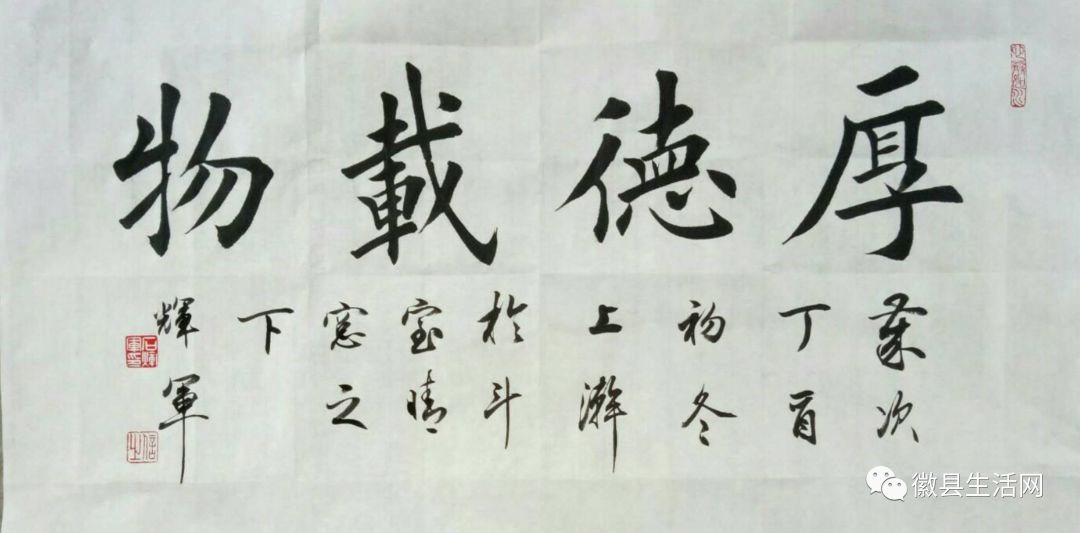 厚德載物
歲次
丁酉
初冬
上澣
於斗
室晴
窓之
下
輝軍
石輝軍印
徽县生活网